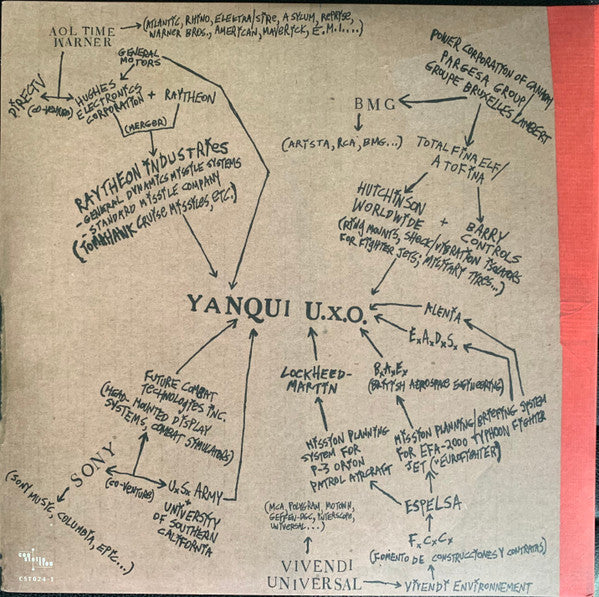 AOL TIME
WARNER
(ATLANTIC, RHINO, ELEKTRA/SIRE, ASYLUM, REPRISE,
WARNER BROS., AMERICAN, MAVERICK, E.M.I....)
DIRECTV
(CO-VENTURE)
GENERAL
MOTORS
HUGHES
ELECTRONICS
CORPORATION
+ RAYTHEON
(MERGER)
RAYTHEON INDUSTRIES
- GENERAL DYNAMICS MISSILE SYSTEMS
- STANDARD MISSILE COMPANY
(TOMAHAWK CRUISE MISSILES, ETC.)
POWER CORPORATION OF CANADA/
PARGESA GROUP/
GROUPE BRUXELLES LAMBERT
BMG
(ARISTA, RCA, BMG...)
TOTALFINAELF/
ATOFINA
HUTCHINSON
WORLDWIDE
+
BARRY
CONTROLS
(RING MOUNTS, SHOCK/VIBRATION ISOLATORS
FOR FIGHTER JETS; MILITARY TYRES...)
YANQUI U.X.O.
ALENIA
E.A.D.S.
LOCKHEED-
MARTIN
B.A.E.
(BRITISH AEROSPACE ENGINEERING)
FUTURE COMBAT
TECHNOLOGIES INC.
(HEAD-MOUNTED DISPLAY
SYSTEMS, COMBAT SIMULATORS)
MISSION PLANNING
SYSTEM FOR
P-3 ORION
PATROL AIRCRAFT
MISSION PLANNING/BRIEFING SYSTEM
FOR EFA-2000 TYPHOON FIGHTER
JET ("EUROFIGHTER")
SONY
(CO-VENTURE)
U.S. ARMY
+
UNIVERSITY
OF SOUTHERN
CALIFORNIA
(SONY MUSIC, COLUMBIA, EPIC...)
ESPELSA
(MCA, POLYGRAM, MOTOWN,
GEFFEN-DGC, INTERSCOPE,
UNIVERSAL...)
F.C.C.
(FOMENTO DE CONSTRUCCIONES Y CONTRATAS)
VIVENDI
UNIVERSAL
VIVENDI ENVIRONNEMENT
con
stella
tion
CST024-1